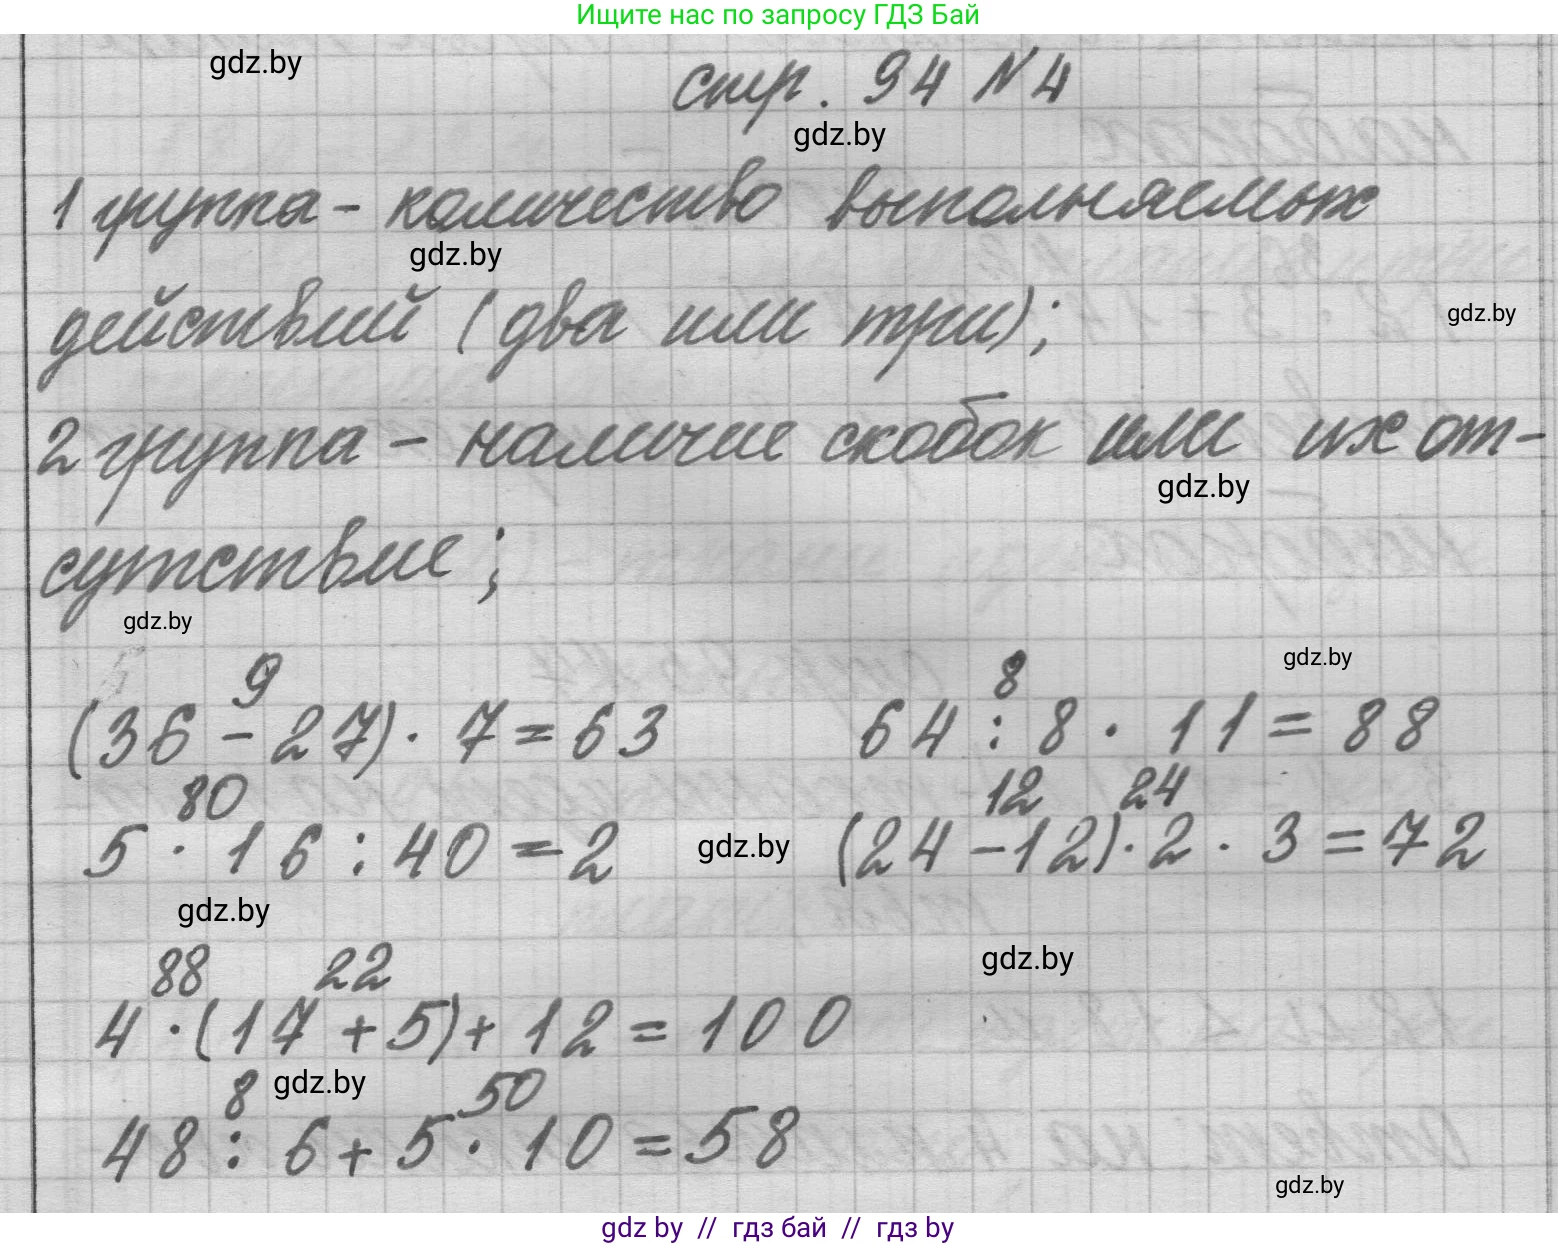 Ищите нас по запросу ГДЗ Бай
gdz.by
стр. 94 N 4
gdz.by
1 группа - количество выполняемых
gdz.by
действий (два или три);
gdz.by
2 группа - наличие скобок или их от-
gdz.by
сутствие;
gdz.by
gdz.by
9 8
(36 - 27) · 7 = 63 64 : 8 · 11 = 88
80 12 24
5 · 16 : 40 = 2 gdz.by (24 - 12) · 2 · 3 = 72
gdz.by
88 22 gdz.by
4 · (17 + 5) + 12 = 100
8 gdz.by 50
48 : 6 + 5 · 10 = 58
gdz.by
gdz by // гдз бай // гдз by